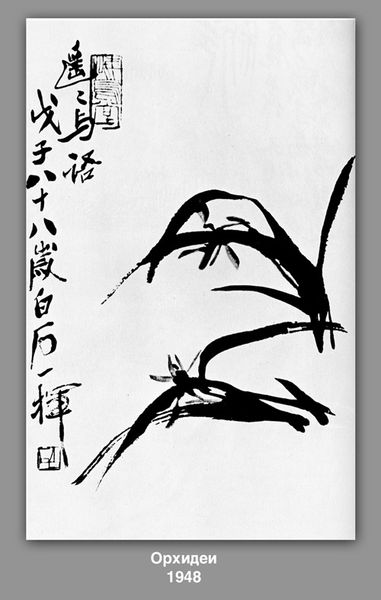 遙〻与語
戊子八十八歲白石一揮
Орхидеи
1948